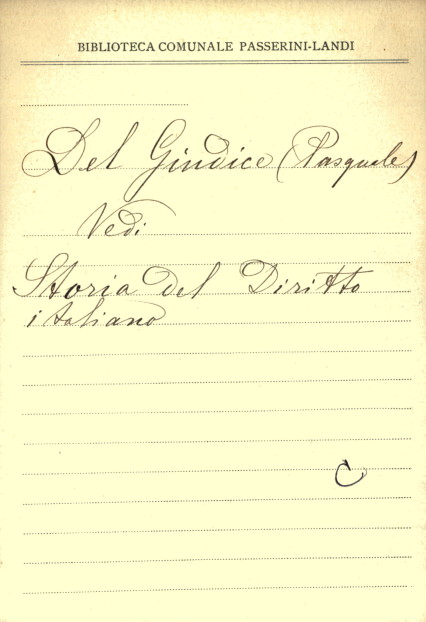 BIBLIOTECA COMUNALE PASSERINI-LANDI
Del Giudice (Pasquale)
Vedi
Storia del Diritto
italiano
C